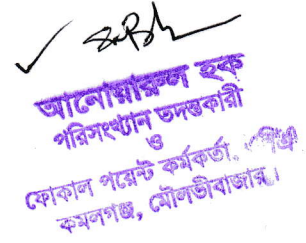 আনোয়ারুল হক
পরিসংখ্যান তদন্তকারী
ও
ফোকাল পয়েন্ট কর্মকর্তা,
কমলগঞ্জ, মৌলভীবাজার।